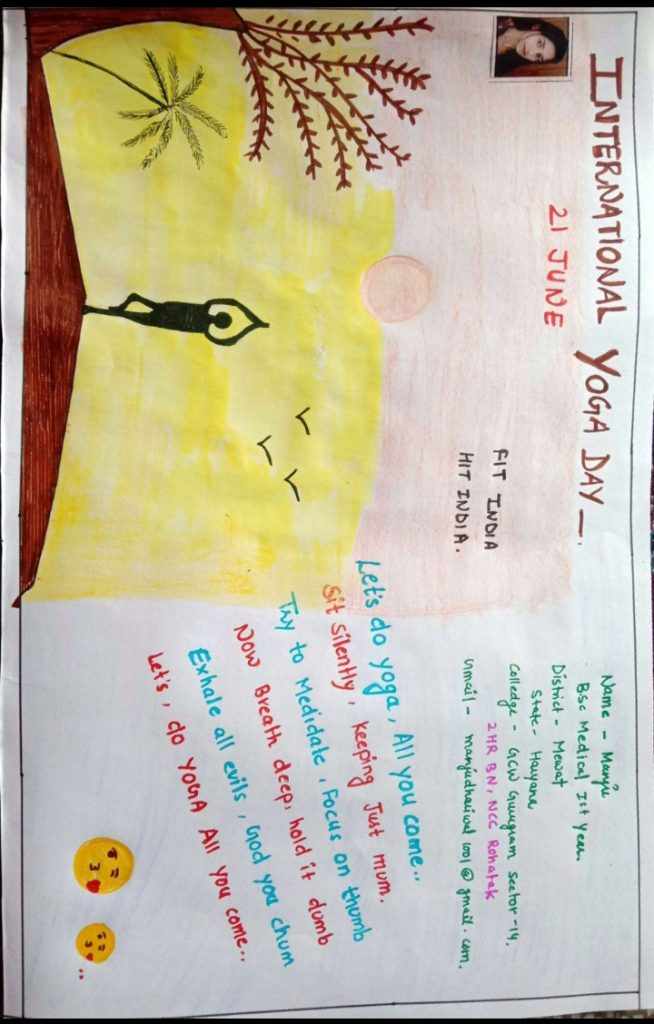 INTERNATIONAL YOGA DAY —.
21 JUNE
FIT INDIA
HIT INDIA.
Name - Manju
Bsc Medical Ist Year.
District - Mewat
State - Haryana
Colledge - GCW Gurugram Sector-14.
2HR BN, NCC Rohatak
Gmail - manjudhariwal1001@gmail.com.
Let's do yoga, All you come..
Sit silently, keeping Just mum.
Try to Medidate, Focus on thumb
Now Breath deep, hold it dumb
Exhale all evils, God you chum
Let's, do YOGA All You come..